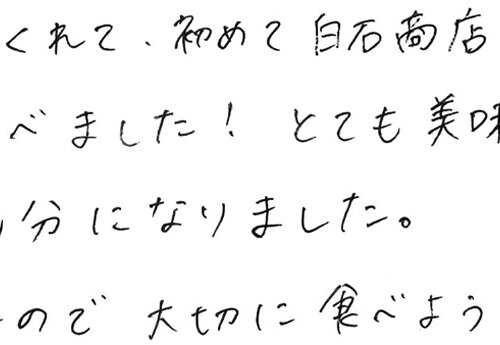 くれて、初めて白石商店
べました！とても美味
分になりました。
ので大切に食べよう